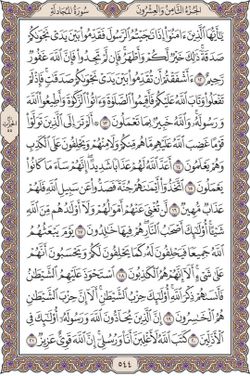 الجزء الثامن والعشرون
سورة المجادلة
يَٰٓأَيُّهَا ٱلَّذِينَ ءَامَنُوٓا۟ إِذَا نَٰجَيْتُمُ ٱلرَّسُولَ فَقَدِّمُوا۟ بَيْنَ يَدَىْ نَجْوَىٰكُمْ
صَدَقَةً ذَٰلِكَ خَيْرٌ لَّكُمْ وَأَطْهَرُ فَإِن لَّمْ تَجِدُوا۟ فَإِنَّ ٱللَّهَ غَفُورٌ
رَّحِيمٌ ١٢ ءَأَشْفَقْتُمْ أَن تُقَدِّمُوا۟ بَيْنَ يَدَىْ نَجْوَىٰكُمْ صَدَقَٰتٍ فَإِذْ لَمْ
تَفْعَلُوا۟ وَتَابَ ٱللَّهُ عَلَيْكُمْ فَأَقِيمُوا۟ ٱلصَّلَوٰةَ وَءَاتُوا۟ ٱلزَّكَوٰةَ وَأَطِيعُوا۟ ٱللَّهَ
وَرَسُولَهُۥ وَٱللَّهُ خَبِيرٌۢ بِمَا تَعْمَلُونَ ١٣ أَلَمْ تَرَ إِلَى ٱلَّذِينَ تَوَلَّوْا۟
قَوْمًا غَضِبَ ٱللَّهُ عَلَيْهِم مَّا هُم مِّنكُمْ وَلَا مِنْهُمْ وَيَحْلِفُونَ عَلَى ٱلْكَذِبِ
وَهُمْ يَعْلَمُونَ ١٤ أَعَدَّ ٱللَّهُ لَهُمْ عَذَابًا شَدِيدًا إِنَّهُمْ سَآءَ مَا كَانُوا۟
يَعْمَلُونَ ١٥ ٱتَّخَذُوٓا۟ أَيْمَٰنَهُمْ جُنَّةً فَصَدُّوا۟ عَن سَبِيلِ ٱللَّهِ فَلَهُمْ
عَذَابٌ مُّهِينٌ ١٦ لَّن تُغْنِىَ عَنْهُمْ أَمْوَٰلُهُمْ وَلَآ أَوْلَٰدُهُم مِّنَ ٱللَّهِ
شَيْـًٔا أُو۟لَٰٓئِكَ أَصْحَٰبُ ٱلنَّارِ هُمْ فِيهَا خَٰلِدُونَ ١٧ يَوْمَ يَبْعَثُهُمُ
ٱللَّهُ جَمِيعًا فَيَحْلِفُونَ لَهُۥ كَمَا يَحْلِفُونَ لَكُمْ وَيَحْسَبُونَ أَنَّهُمْ
عَلَىٰ شَىْءٍ أَلَآ إِنَّهُمْ هُمُ ٱلْكَٰذِبُونَ ١٨ ٱسْتَحْوَذَ عَلَيْهِمُ ٱلشَّيْطَٰنُ
فَأَنسَىٰهُمْ ذِكْرَ ٱللَّهِ أُو۟لَٰٓئِكَ حِزْبُ ٱلشَّيْطَٰنِ أَلَآ إِنَّ حِزْبَ ٱلشَّيْطَٰنِ
هُمُ ٱلْخَٰسِرُونَ ١٩ إِنَّ ٱلَّذِينَ يُحَآدُّونَ ٱللَّهَ وَرَسُولَهُۥٓ أُو۟لَٰٓئِكَ فِى
ٱلْأَذَلِّينَ ٢٠ كَتَبَ ٱللَّهُ لَأَغْلِبَنَّ أَنَا۠ وَرُسُلِىٓ إِنَّ ٱللَّهَ قَوِىٌّ عَزِيزٌ ٢١
٥٤٤